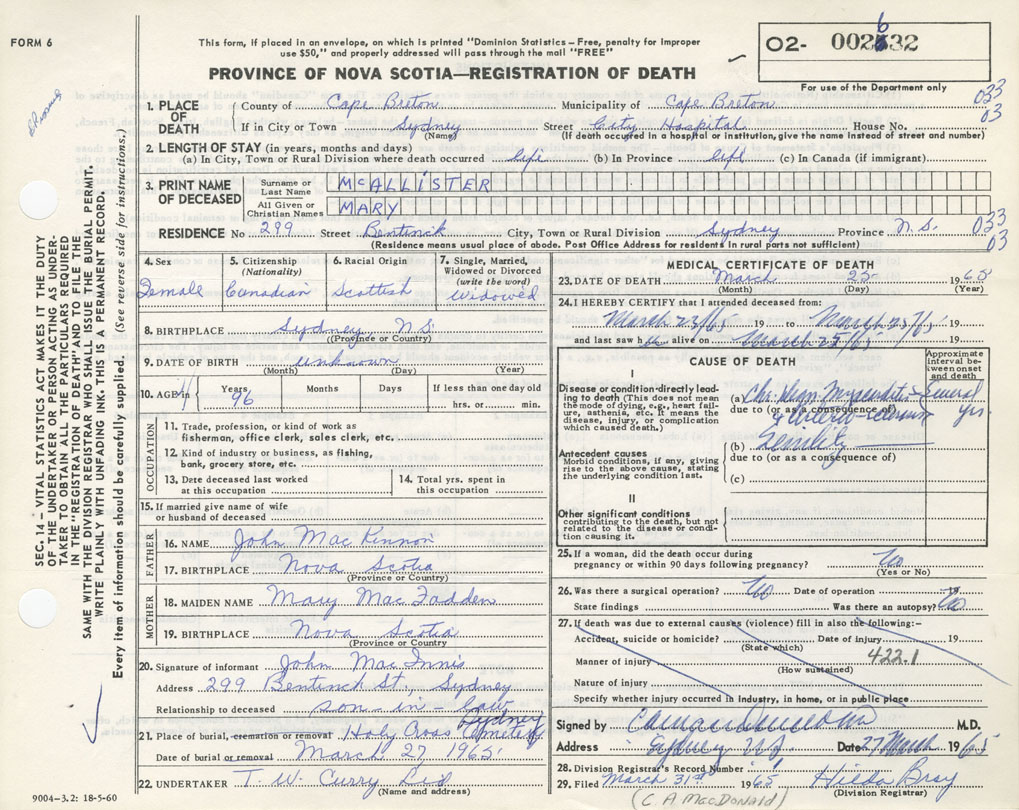 FORM 6
This form, if placed in an envelope, on which is printed "Dominion Statistics – Free, penalty for improper
use $50," and properly addressed will pass through the mail "FREE"
O2- 002632
PROVINCE OF NOVA SCOTIA—REGISTRATION OF DEATH
For use of the Department only
SEC. 14 – VITAL STATISTICS ACT MAKES IT THE DUTY
OF THE UNDERTAKER OR PERSON ACTING AS UNDER-
TAKER TO OBTAIN ALL THE PARTICULARS REQUIRED
IN THE "REGISTRATION OF DEATH" AND TO FILE THE
SAME WITH THE DIVISION REGISTRAR WHO SHALL ISSUE THE BURIAL PERMIT.
WRITE PLAINLY WITH UNFADING INK. THIS IS A PERMANENT RECORD.
Every item of information should be carefully supplied. (See reverse side for instructions.)
1. PLACE OF DEATH County of Cape Breton Municipality of Cape Breton 033
03
If in City or Town Sydney Street City Hospital House No.
(Name) (If death occurred in a hospital or institution, give the name instead of street and number)
2. LENGTH OF STAY (in years, months and days)
(a) In City, Town or Rural Division where death occurred life (b) In Province life (c) In Canada (if immigrant)
3. PRINT NAME OF DECEASED Surname or Last Name MCALLISTER
All Given or Christian Names MARY
RESIDENCE No 299 Street Bentinck City, Town or Rural Division Sydney Province N.S. 033
03
(Residence means usual place of abode. Post Office Address for residents in rural parts not sufficient)
4. Sex Female
5. Citizenship (Nationality) Canadian
6. Racial Origin Scottish
7. Single, Married, Widowed or Divorced (write the word) Widowed
8. BIRTHPLACE Sydney, N.S.
(Province or Country)
9. DATE OF BIRTH unknown
(Month) (Day) (Year)
10. AGE in Years 96 Months Days If less than one day old
hrs. or min.
OCCUPATION
11. Trade, profession, or kind of work as
fisherman, office clerk, sales clerk, etc.
12. Kind of industry or business, as fishing,
bank, grocery store, etc.
13. Date deceased last worked
at this occupation
14. Total yrs. spent in
this occupation
15. If married give name of wife
or husband of deceased
FATHER
16. NAME John MacKinnon
17. BIRTHPLACE Nova Scotia
(Province or Country)
MOTHER
18. MAIDEN NAME Mary MacFadden
19. BIRTHPLACE Nova Scotia
(Province or Country)
20. Signature of informant John MacInnis
Address 299 Bentinck St., Sydney
Relationship to deceased son-in-law
21. Place of burial, cremation or removal Holy Cross Cemetery Sydney
Date of burial or removal March 27, 1965
22. UNDERTAKER T. W. Curry Ltd
(Name and address)
9004-3.2: 18-5-60
MEDICAL CERTIFICATE OF DEATH
23. DATE OF DEATH March 25 1965
(Month) (Day) (Year)
24. I HEREBY CERTIFY that I attended deceased from:
March 23/65 19 to March 25/65 19
and last saw h alive on March 25/65 19
CAUSE OF DEATH
Approximate interval between onset and death
I
Disease or condition directly leading to death (This does not mean the mode of dying, e.g., heart failure, asthenia, etc. It means the disease, injury, or complication which caused death.)
(a) Chr. Degn. Myocarditis Several yrs.
due to (or as a consequence of)
& Arterio-sclerosis
(b) Senility
due to (or as a consequence of)
(c)
Antecedent causes
Morbid conditions, if any, giving rise to the above cause, stating the underlying condition last.
II
Other significant conditions
contributing to the death, but not related to the disease or condition causing it.
25. If a woman, did the death occur during
pregnancy or within 90 days following pregnancy? No
(Yes or No)
26. Was there a surgical operation? No Date of operation 19
State findings Was there an autopsy? No
27. If death was due to external causes (violence) fill in also the following:-
Accident, suicide or homicide? Date of injury 19
(State which)
Manner of injury 422.1
(How sustained)
Nature of injury
Specify whether injury occurred in industry, in home, or in public place
Signed by M.D.
Address Sydney N.S. Date 27 March 1965
28. Division Registrar's Record Number
29. Filed March 31st 1965 Hilda Bray
(Division Registrar)
(C. A MacDonald)